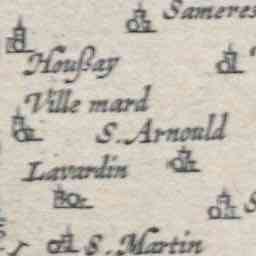 Sameres
Houßay
Ville mard
S. Arnould
Lavardin
S. Martin